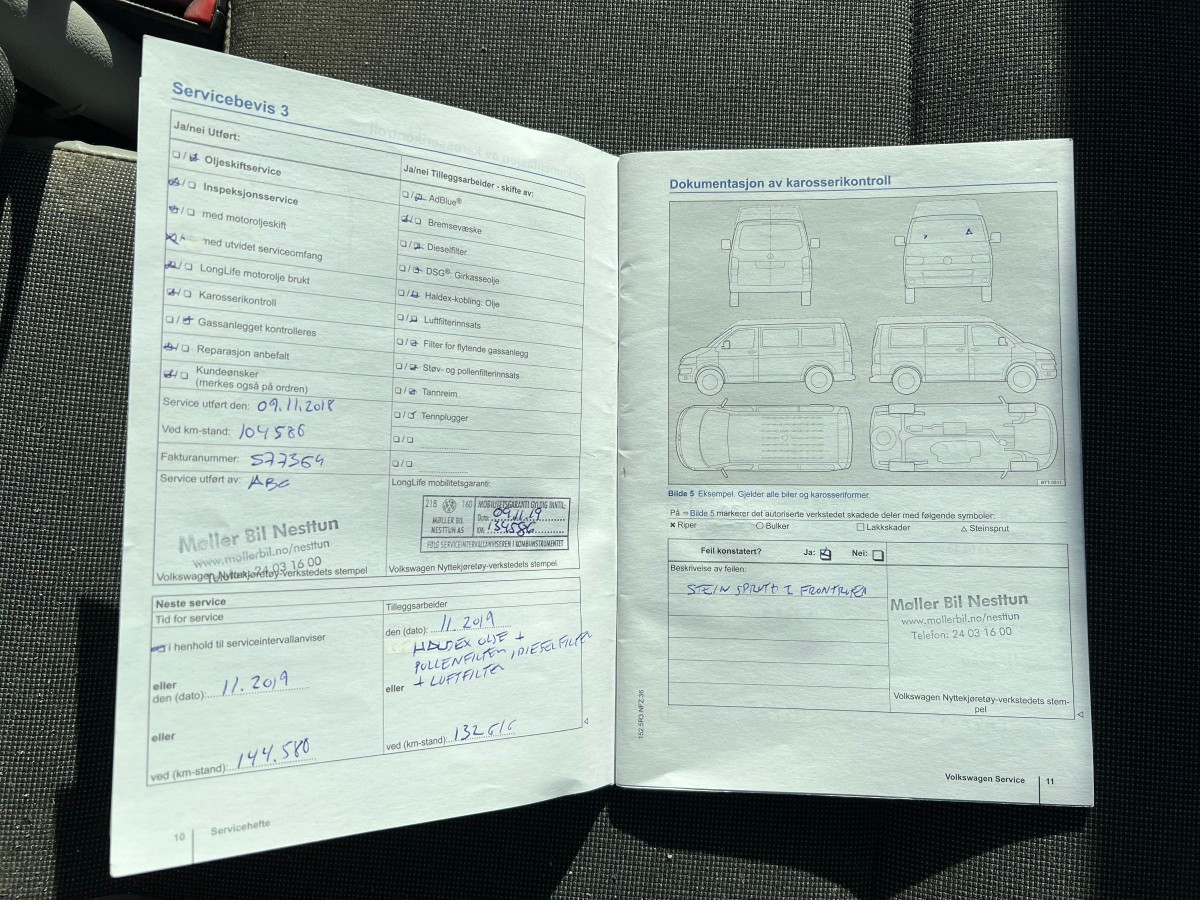 Servicebevis 3
Ja/nei Utført:
❏ / ❏ Oljeskiftservice
❏ / ❏ Inspeksjonsservice
❏ / ❏ med motoroljeskift
med utvidet serviceomfang
❏ / ❏ LongLife motorolje brukt
❏ / ❏ Karosserikontroll
❏ / ❏ Gassanlegget kontrolleres
❏ / ❏ Reparasjon anbefalt
❏ / ❏ Kundeønsker
(merkes også på ordren)
Service utført den: 09.11.2018
Ved km-stand: 104586
Fakturanummer: 577364
Service utført av: ABG
Møller Bil Nesttun
www.mollerbil.no/nesttun
24 03 16 00
Volkswagen Nyttekjøretøy-verkstedets stempel
Ja/nei Tilleggsarbeider - skifte av:
❏ / ❏ AdBlue®
❏ / ❏ Bremsevæske
❏ / ❏ Dieselfilter
❏ / ❏ DSG®: Girkasseolje
❏ / ❏ Haldex-kobling: Olje
❏ / ❏ Luftfilterinnsats
❏ / ❏ Filter for flytende gassanlegg
❏ / ❏ Støv- og pollenfilterinnsats
❏ / ❏ Tannreim
❏ / ❏ Tennplugger
❏ / ❏
❏ / ❏
LongLife mobilitetsgaranti:
218 160 MOBILITETSGARANTI GYLDIG INNTIL:
MØLLER BIL
NESTTUN AS
Dato: 09.11.19
KM: 134586
FØLG SERVICEINTERVALLANVISEREN I KOMBIINSTRUMENTET
Volkswagen Nyttekjøretøy-verkstedets stempel
Neste service
Tid for service
i henhold til serviceintervallanviser
eller
den (dato): 11.2019
eller
ved (km-stand): 144.580
Tilleggsarbeider
den (dato): 11.2019
HALDEX OLJE +
POLLENFILTER, DIESELFILTER
+ LUFTFILTER
eller
ved (km-stand): 132616
10 Servicehefte
Dokumentasjon av karosserikontroll
Bilde 5 Eksempel. Gjelder alle biler og karosseriformer.
På ⇒ Bilde 5 markerer det autoriserte verkstedet skadede deler med følgende symboler:
✕ Riper ○ Bulker □ Lakkskader △ Steinsprut
Feil konstatert? Ja: ❏ Nei: ❏
Beskrivelse av feilen:
STEIN SPRUTT I FRONTRUTEN
Møller Bil Nesttun
www.mollerbil.no/nesttun
Telefon: 24 03 16 00
Volkswagen Nyttekjøretøy-verkstedets stem-
pel
152.5R3.NFZ.36
Volkswagen Service 11